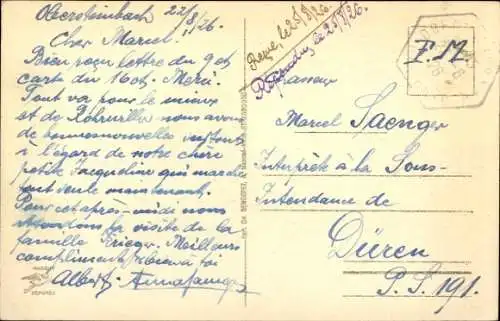 Obersteinbach 22/8/26.
Cher Marcel!
Bien reçu lettre du 9 et
carte du 16 ct. Merci.
Tout va pour le mieux
et de Rohrwiller nous avons
de bonnes nouvelles surtout
à l'égard de notre chère
petite Jacqueline qui marche
toute seule maintenant.
Pour cet après-midi nous
attendons la visite de la
famille Meilleurs
compliments à toi
Albert
Reçu, le 25/8/26
Répondu, le 25/8/26.
F. M.
Monsieur
Marcel Saenger
Interprète à la Sous-
Intendance de
Düren
P. S. 191.